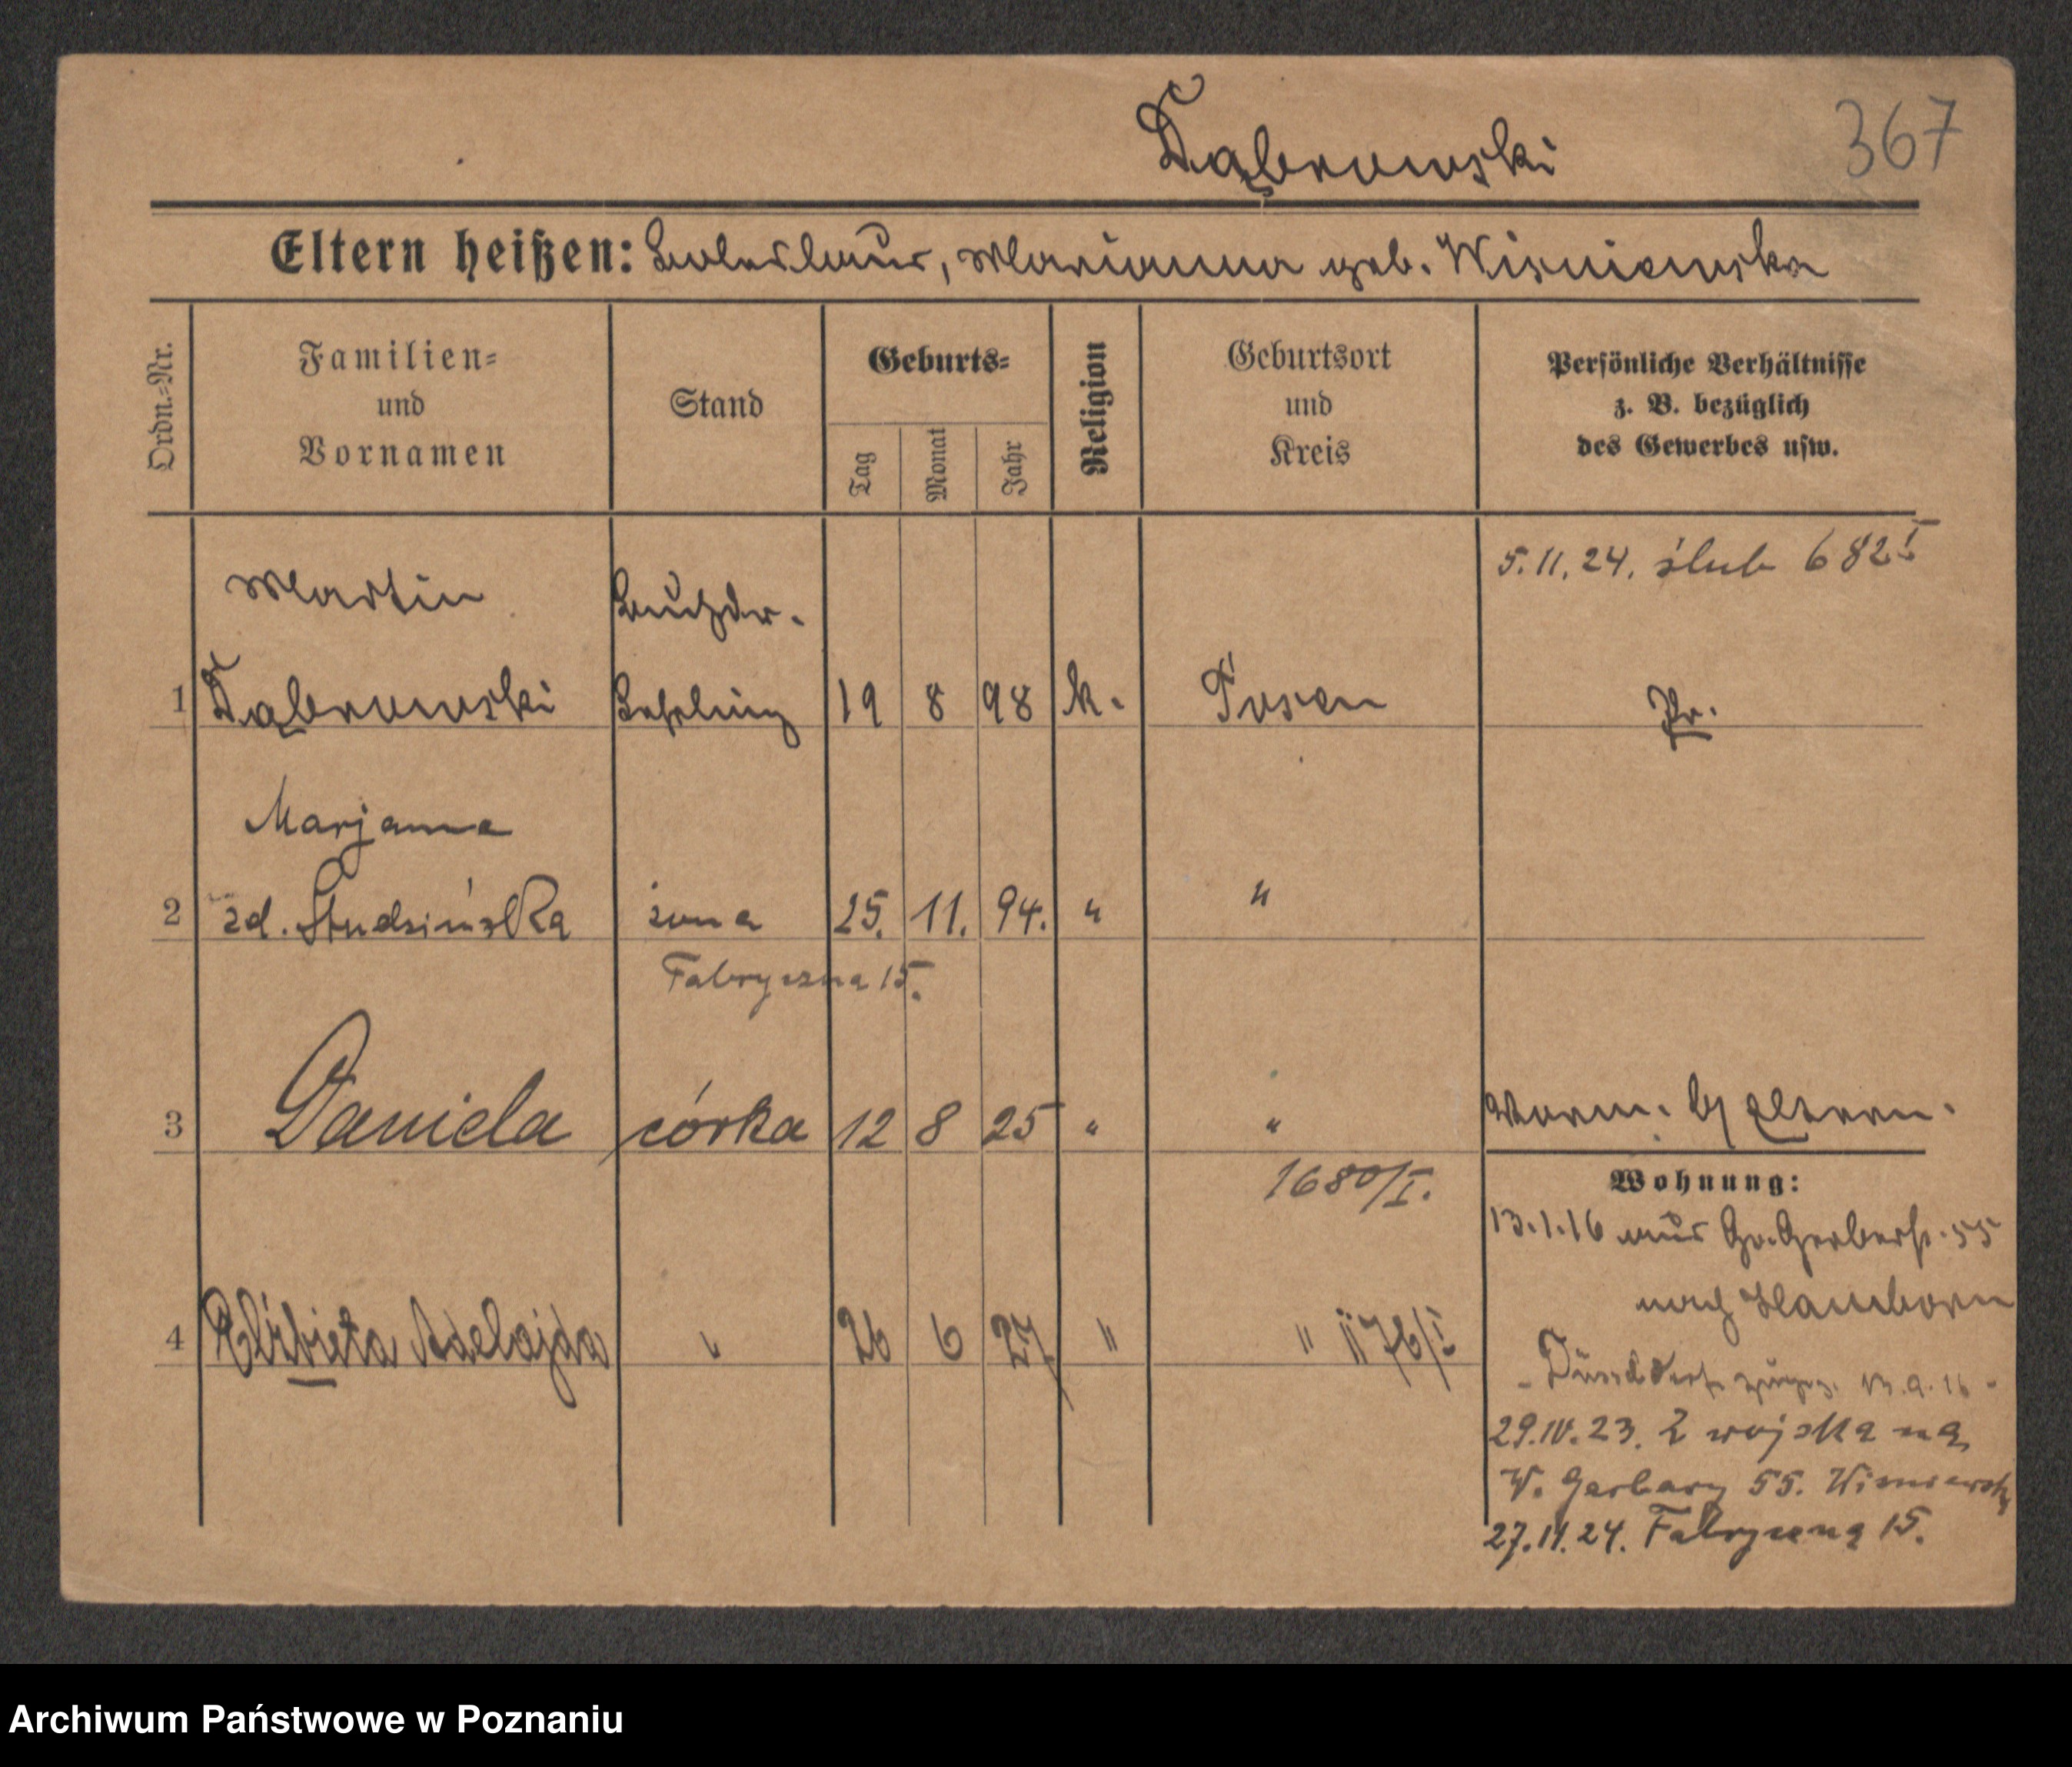 Dąbrowski 367
Eltern heißen: Boleslaus, Marianna geb. Wisniewska
Ordn.-Nr.
Familien- und Vornamen
Stand
Geburts-
Tag
Monat
Jahr
Religion
Geburtsort und Kreis
Persönliche Verhältnisse z. B. bezüglich des Gewerbes usw.
5.11.24. ślub 682 I
Martin Buchdr.
1 Dąbrowski Lehrling 19 8 98 k. Posen Pr.
Marjanna
2 zd. Studzińska żona 25. 11. 94. " "
Fabryczna 15.
3 Daniela córka 12 8 25 " "
1680/I.
4 Elżbieta Adelajda " 26 6 27 " "
Wohnung:
13.1.16 aus Gr. Gerberst. 55
nach Hamborn
29.IV.23. Z wojska na
W. Garbary 55.
27.11.24. Fabryczna 15.
Archiwum Państwowe w Poznaniu